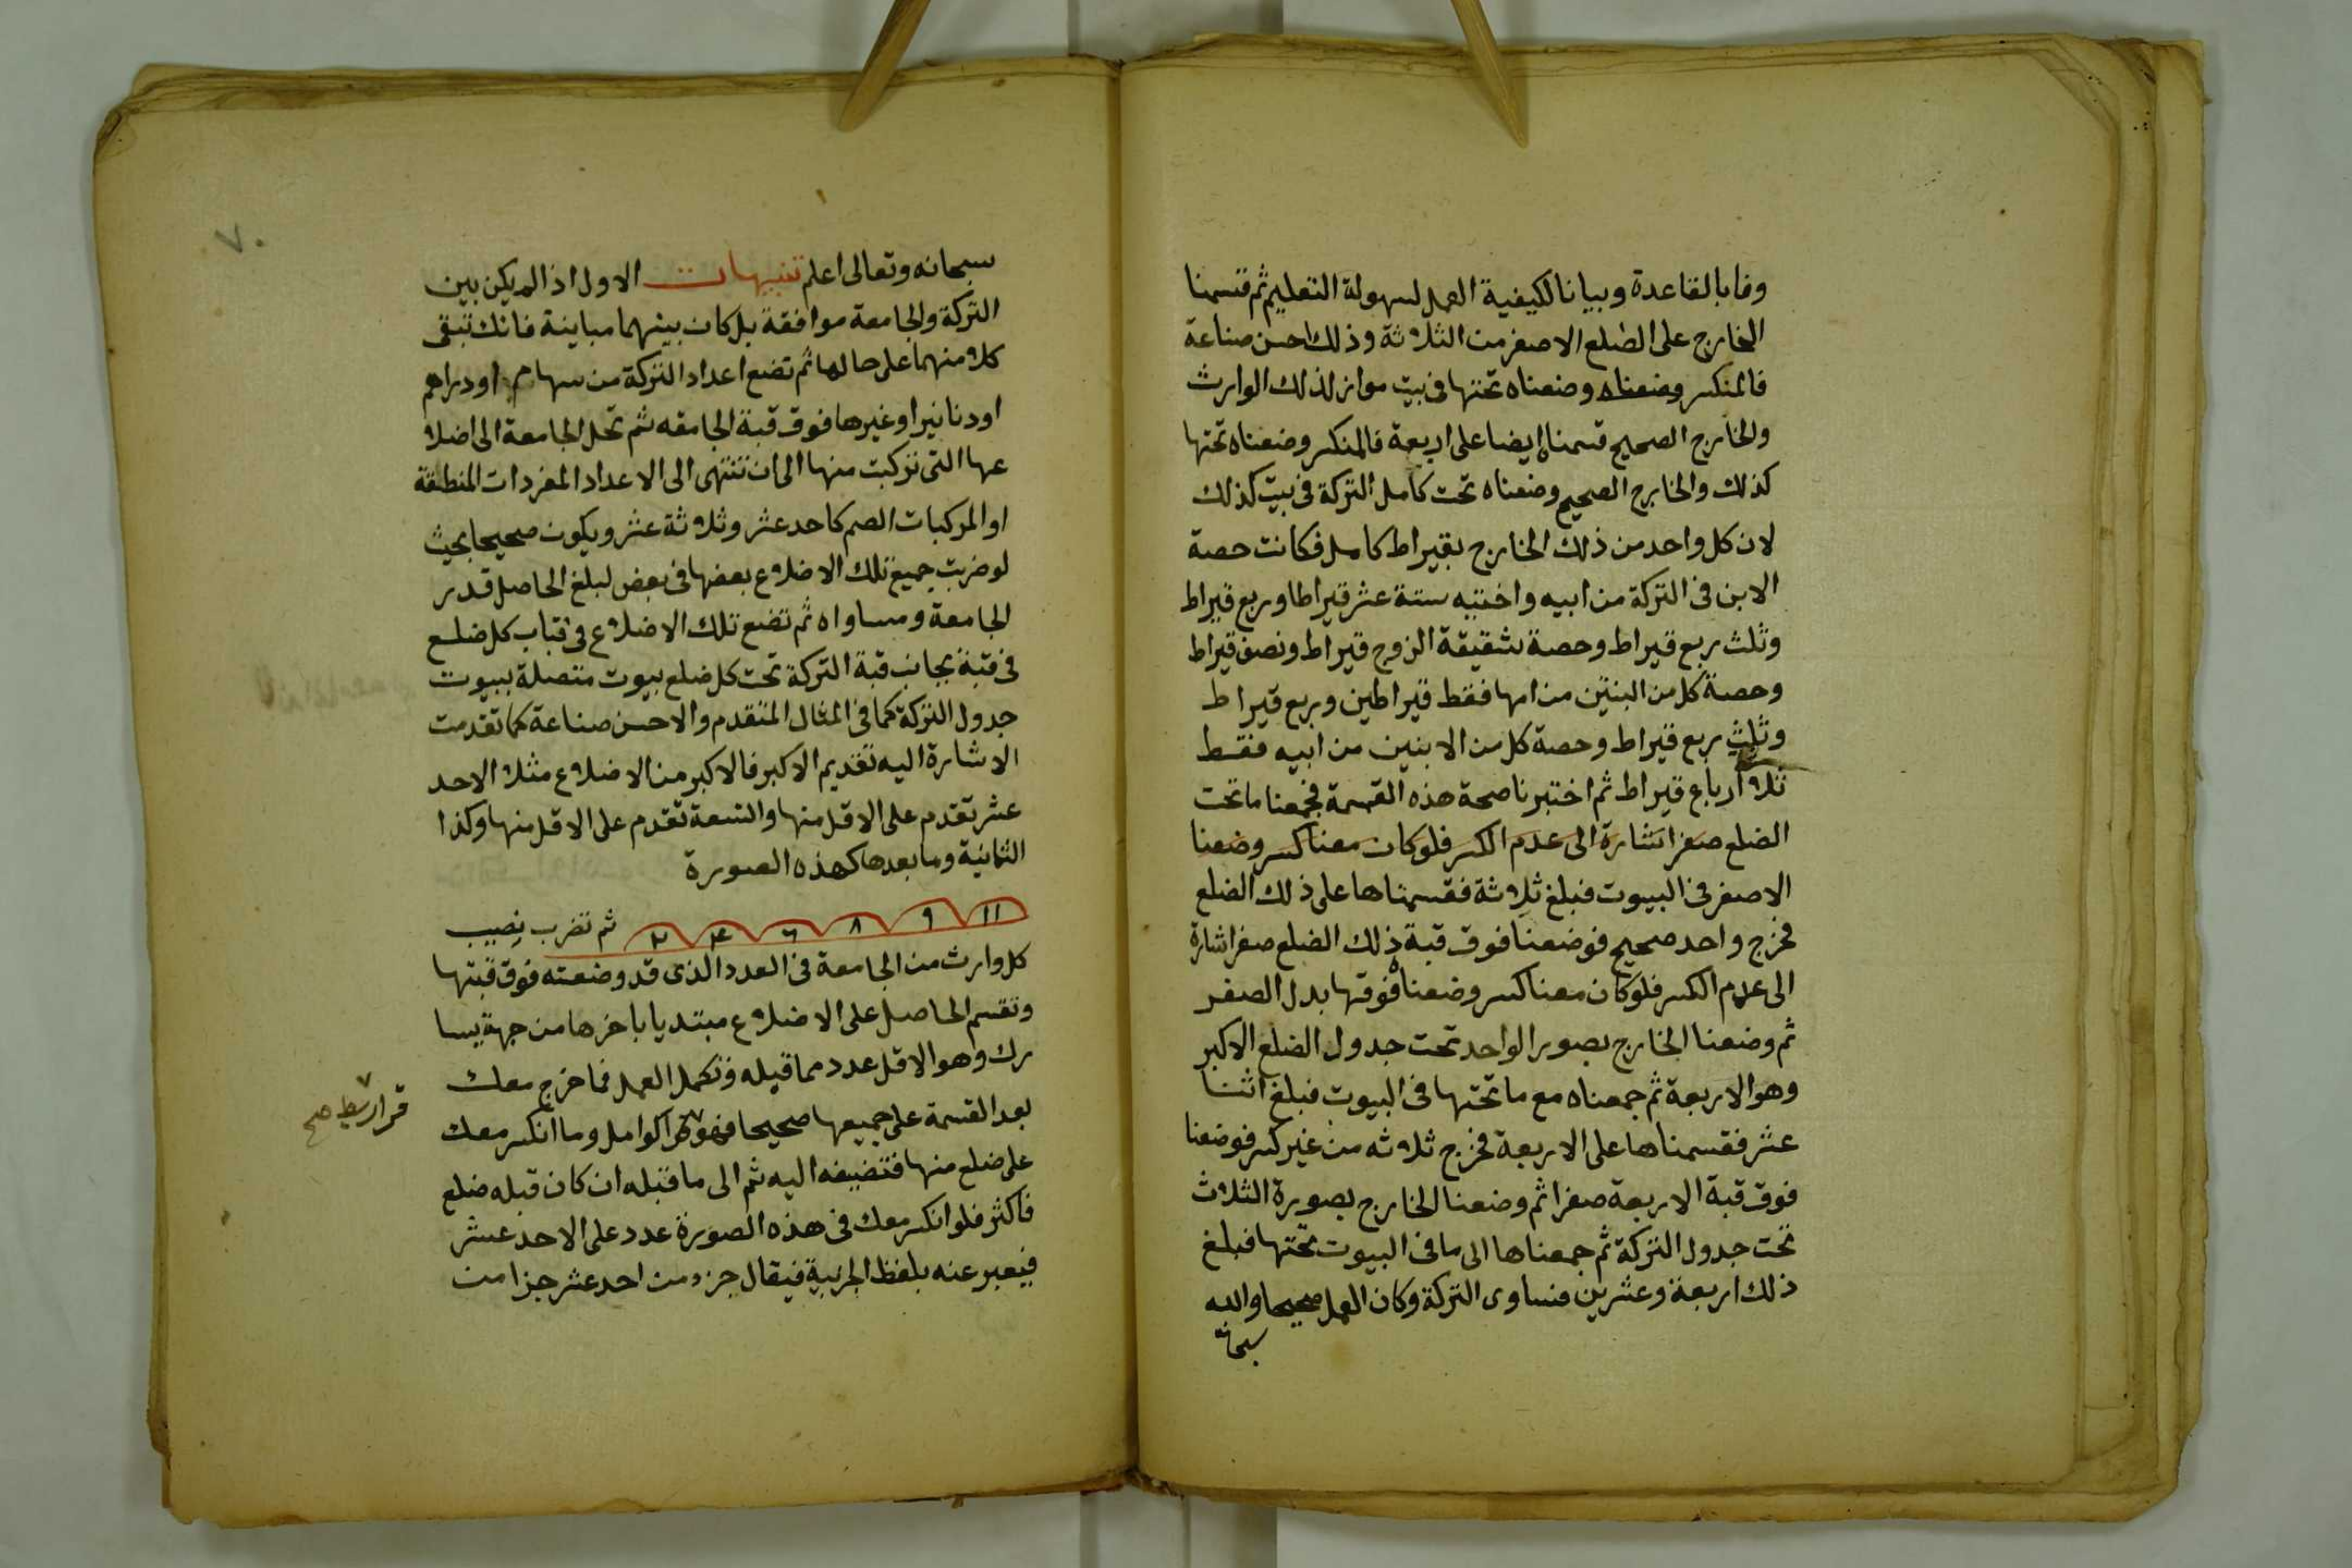 وفا بالقاعدة وبيانا لكيفية العمل لسهولة التعليم ثم قسمنا
الخارج على الضلع الاصغر من الثلاثة وذلك احسن صناعة
فالمنكسر وضعناه وضعناه تحتها فى بيت مواز لذلك الوارث
والخارج الصحيح قسمناه ايضا على اربعة فالمنكسر وضعناه تحتها
كذلك والخارج الصحيح وضعناه تحت كامل التركة فى بيت كذلك
لان كل واحد من ذلك الخارج بقيراط كامل فكانت حصة
الابن فى التركة من ابيه واختيه ستة عشر قيراطا وربع قيراط
وثلث ربع قيراط وحصة شقيقة الزوج قيراط ونصف قيراط
وحصة كل من البنتين من امها فقط قيراطين وربع قيراط
وثلث ربع قيراط وحصة كل من الابنين من ابيه فقط
ثلاث ارباع قيراط ثم اختبرنا صحة هذه القسمة فجمعنا ما تحت
الضلع صفرا اشارة الى عدم الكسر فلو كان معنا كسر وضعنا
الاصغر فى البيوت فبلغ ثلاثة فقسمناها على ذلك الضلع
فخرج واحد صحيح فوضعنا فوق قبة ذلك الضلع صفرا اشارة
الى عدم الكسر فلو كان معنا كسر وضعناه فوقها بدل الصفر
ثم وضعنا الخارج بصور الواحد تحت جدول الضلع الاكبر
وهو الاربعة ثم جمعناه مع ما تحتها فى البيوت فبلغ اثنا
عشر فقسمناها على الاربعة فخرج ثلاثه من غير كسر فوضعنا
فوق قبة الاربعة صفرا ثم وضعنا الخارج بصورة الثلاث
تحت جدول التركة ثم جمعناها الى ما فى البيوت تحتها فبلغ
ذلك اربعة وعشرين فساوى التركة وكان العمل صحيحا والله
سبحانه
٧٠
سبحانه وتعالى اعلم تنبيهات الاول اذا لم يكن بين
التركة والجامعة موافقة بل كان بينهما مباينة فانك تبقى
كلا منهما على حالها ثم تضع اعداد التركة من سهام او دراهم
او دنانير او غيرها فوق قبة الجامعه ثم تحل الجامعة الى اضلا
عها التى تركبت منها الى ان تنتهى الى الاعداد المفردات المنطقة
او المركبات الصم كاحد عشر وثلاثة عشر ويكون صحيحا بحيث
لو ضربت جميع تلك الاضلاع بعضها فى بعض لبلغ الحاصل قدر
الجامعة ومساواه ثم تضع تلك الاضلاع فى قباب كل ضلع
فى قبة بجانب قبة التركة تحت كل ضلع بيوت متصلة ببيوت
جدول التركة كما فى المثال المتقدم والاحسن صناعة كما تقدمت
الاشارة اليه تقديم الاكبر فالاكبر من الاضلاع مثلا الاحد
عشر تقدم على الاقل منها والتسعة تقدم على الاقل منها وكذا
الثمانية وما بعدها كهذه الصورة
١١ ٩ ٨ ٦ ٤ ٢ ثم تضرب نصيب
كل وارث من الجامعة فى العدد الذى قد وضعته فوق قبتها
وتقسم الحاصل على الاضلاع مبتديا باخرها من جهة يسا
رك وهو الاقل عدد مما قبله وتكمل العمل فما خرج معك
بعد القسمة على جميعها صحيحا فهو كوامل وما انكسر معك
قراريط صح
على ضلع منها فتضيفه اليه ثم الى ما قبله ان كان قبله ضلع
فاكثر فلو انكسر معك فى هذه الصورة عدد على الاحد عشر
فيعبر عنه بلفظ الجزيية فيقال جزء من احد عشر جزا من